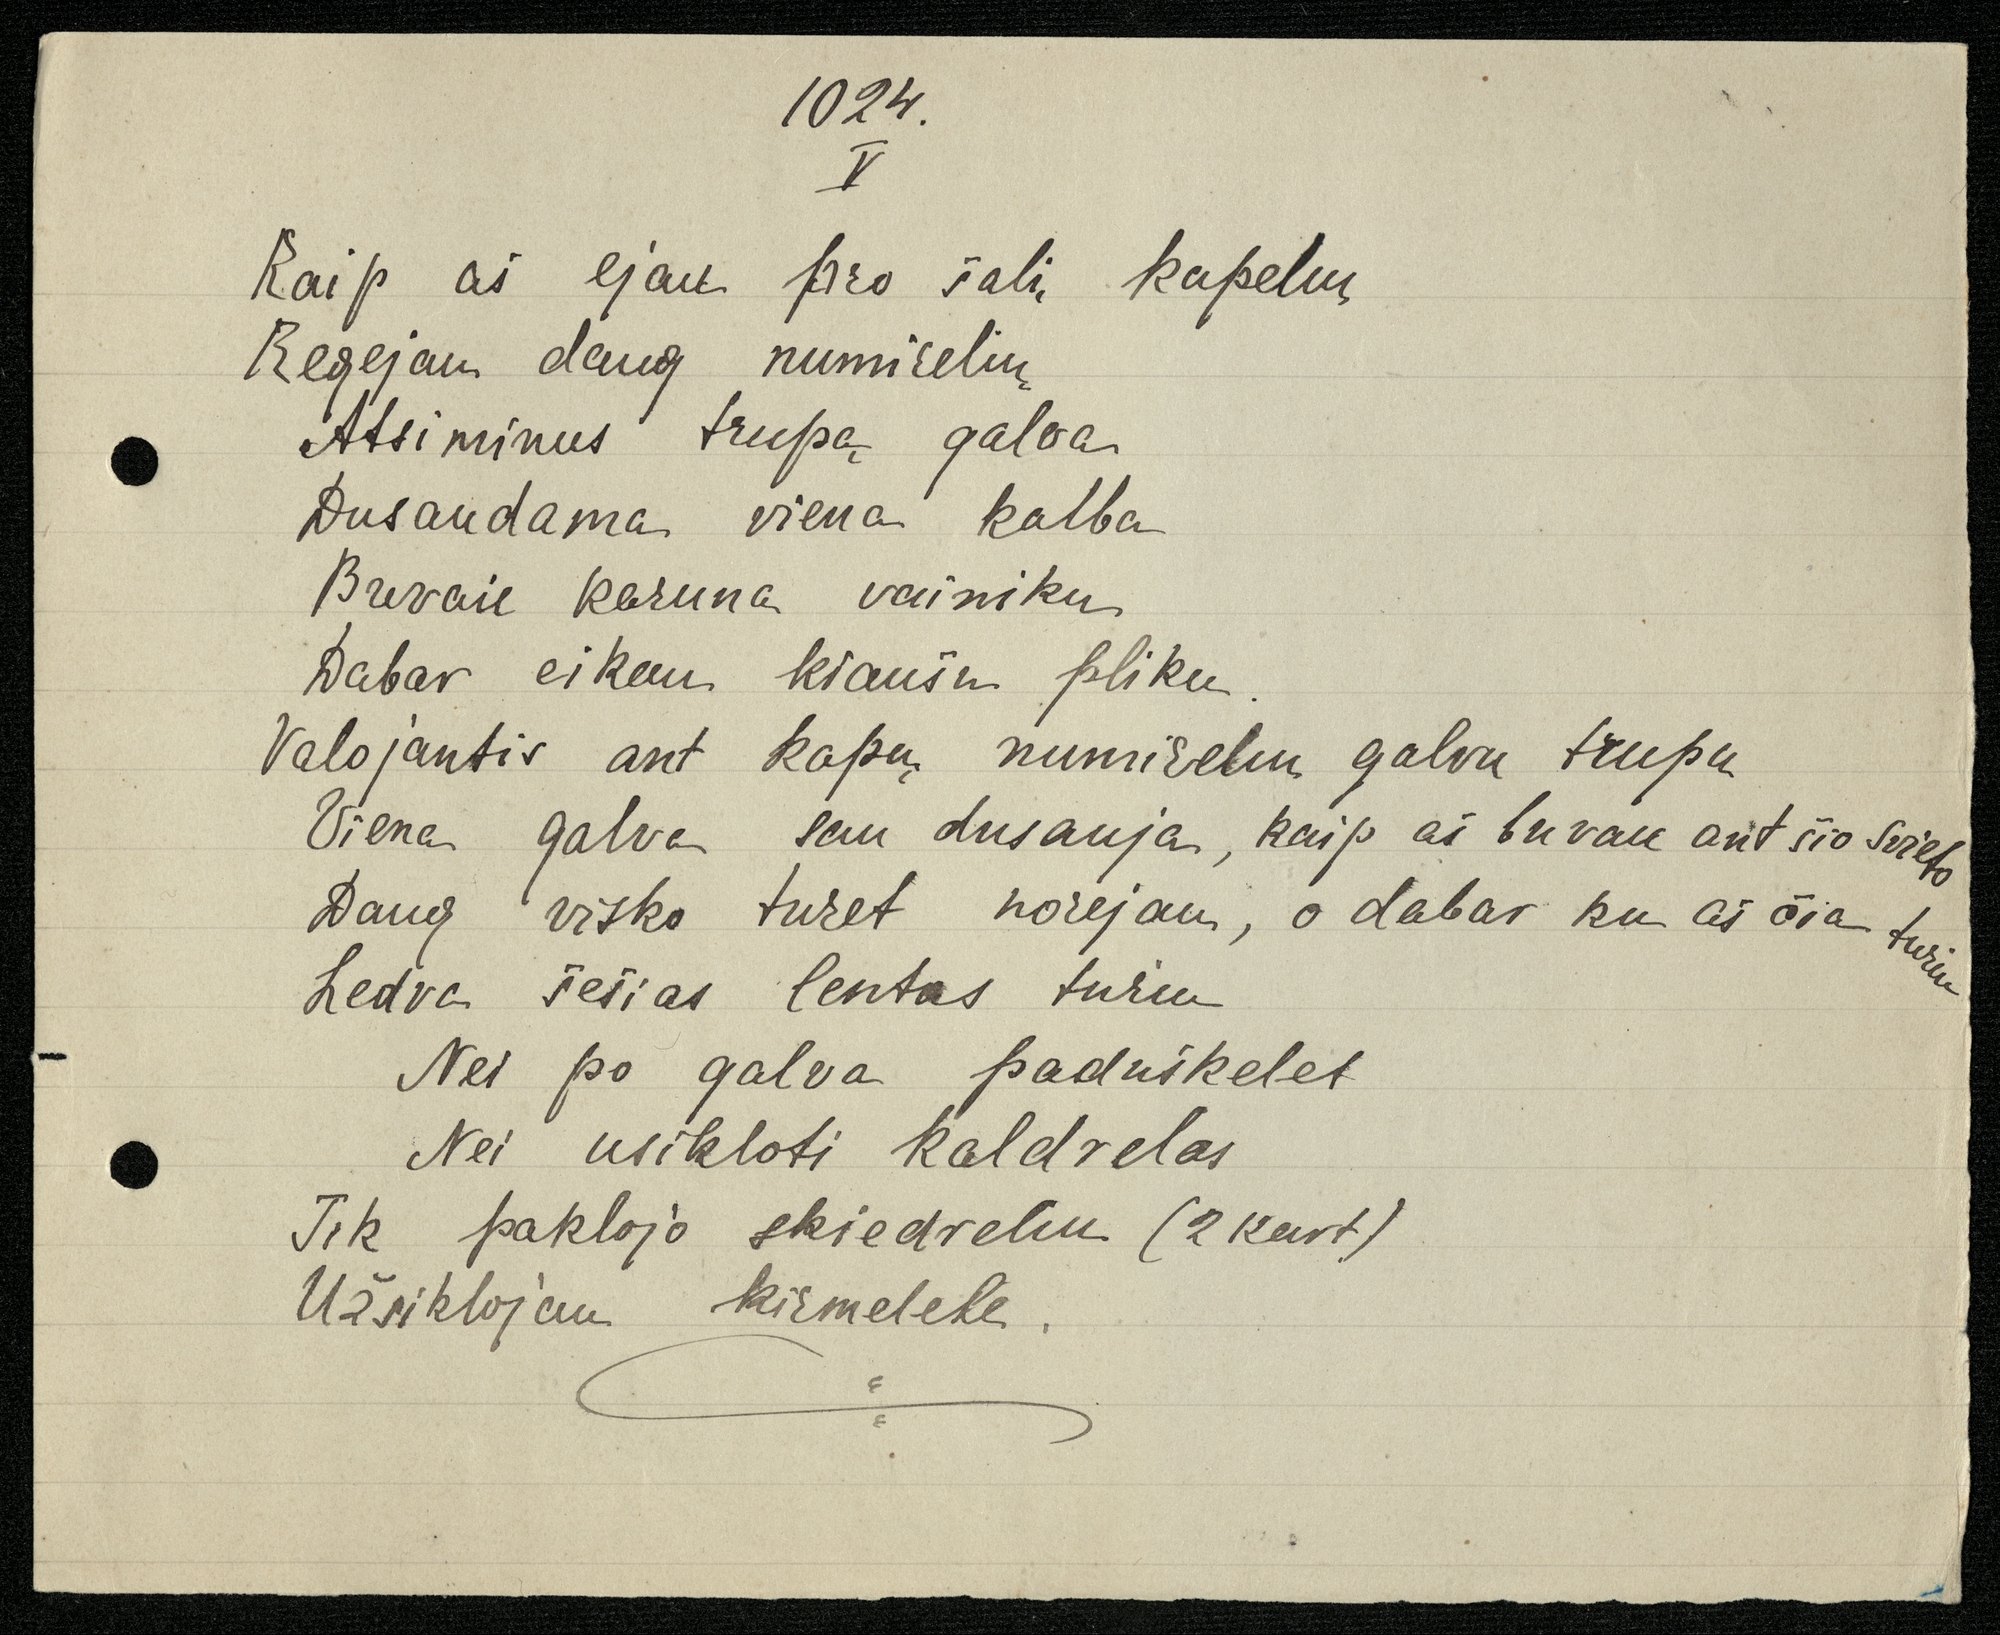 1024.
V
Kaip aš ejau pro šalį kapelų
Regejau daug numirelių
Atsiminus trupą galva
Dusaudama viena kalba
Buvau karuna vainiku
Dabar eikau kiaušu pliku.
Valojantis ant kapų numirelu galvu trupu
Viena galva sau dusauja, kaip aš buvau ant šio svieto
Daug visko turet norejau, o dabar ku aš čia turiu
Ledva šešias lentas turiu
Nei po galva paduškelet
Nei usikloti kaldrelas
Tik paklojo skiedreliu (2 kart)
Užsiklojau kirmelele.